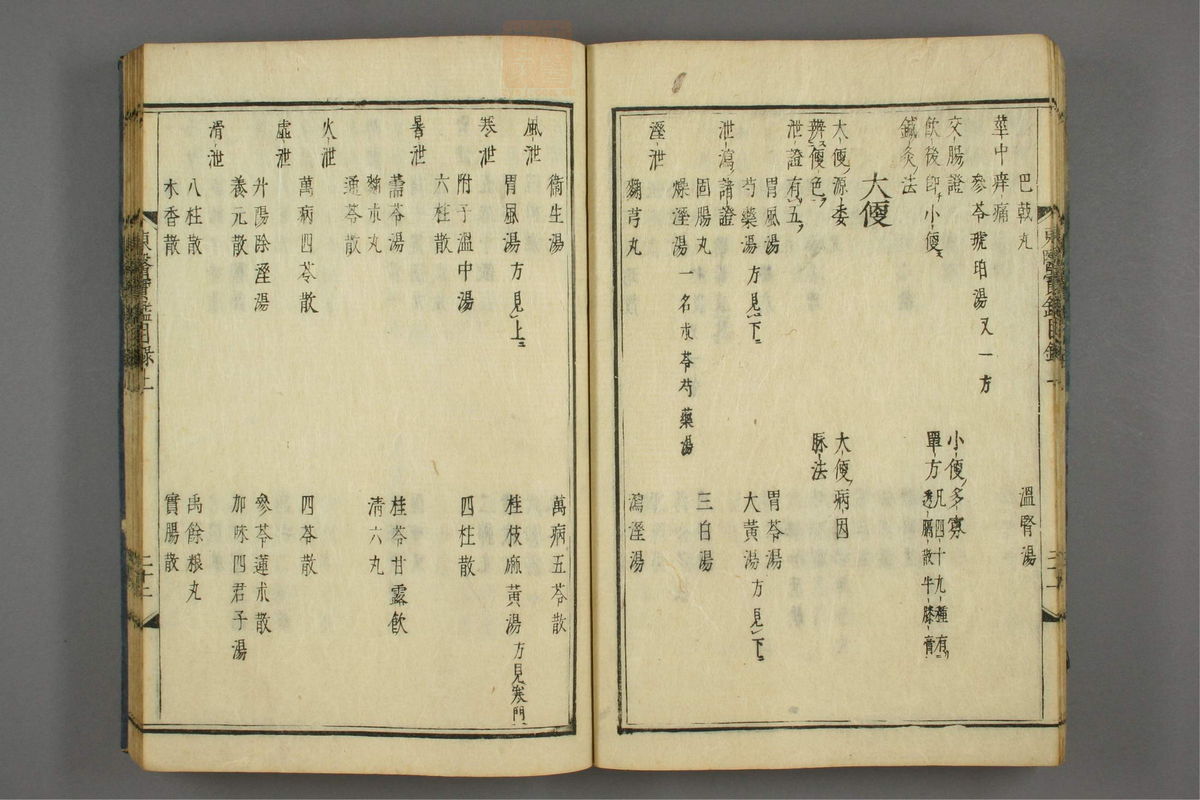 巴戟丸 溫腎湯
莖中痒痛
參苓琥珀湯又一方
交腸證 小便多寡
飲後卽小便 單方凡四十九種有透膈散牛膝膏
鍼灸法
大便
大便源委 大便病因
辨便色 脉法
泄證有五
胃風湯 胃苓湯
芍藥湯方見下 大黃湯方見下
泄瀉諸證
固腸丸 三白湯
燥溼湯一名朮苓芍藥湯
溼泄
麴芎丸 瀉溼湯
衛生湯 萬病五苓散
風泄
胃風湯方見上 桂枝麻黃湯方見寒門
寒泄
附子溫中湯 四柱散
六柱散
暑泄
薷苓湯 桂苓甘露飮
麴朮丸 淸六丸
通苓散
火泄
萬病四苓散 四苓散
虛泄
升陽除溼湯 參苓蓮朮散
養元散 加味四君子湯
滑泄
八柱散 禹餘粮丸
木香散 實腸散
東醫寶鑑目錄上